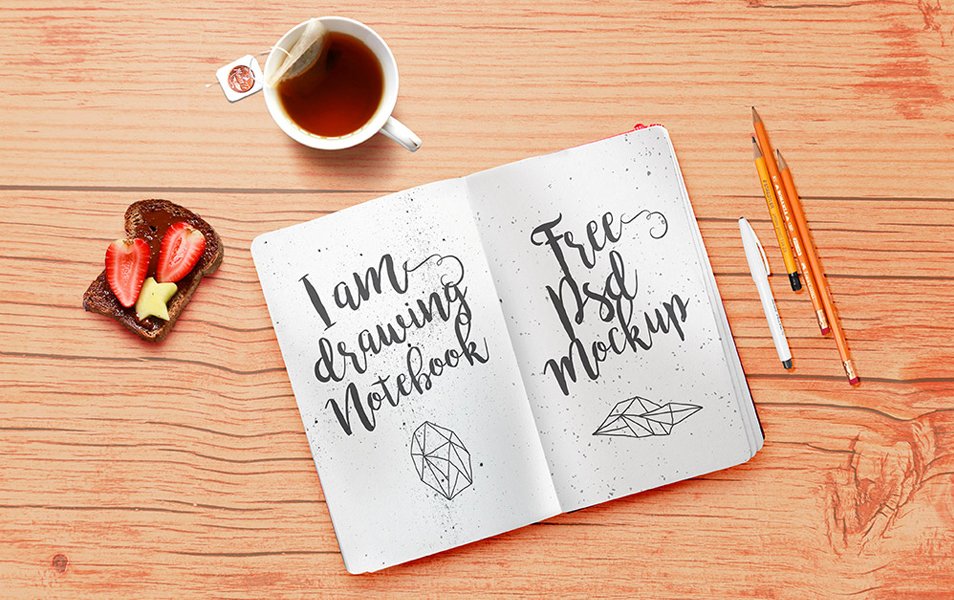 I am
drawing
Notebook
Free
Psd
Mockup